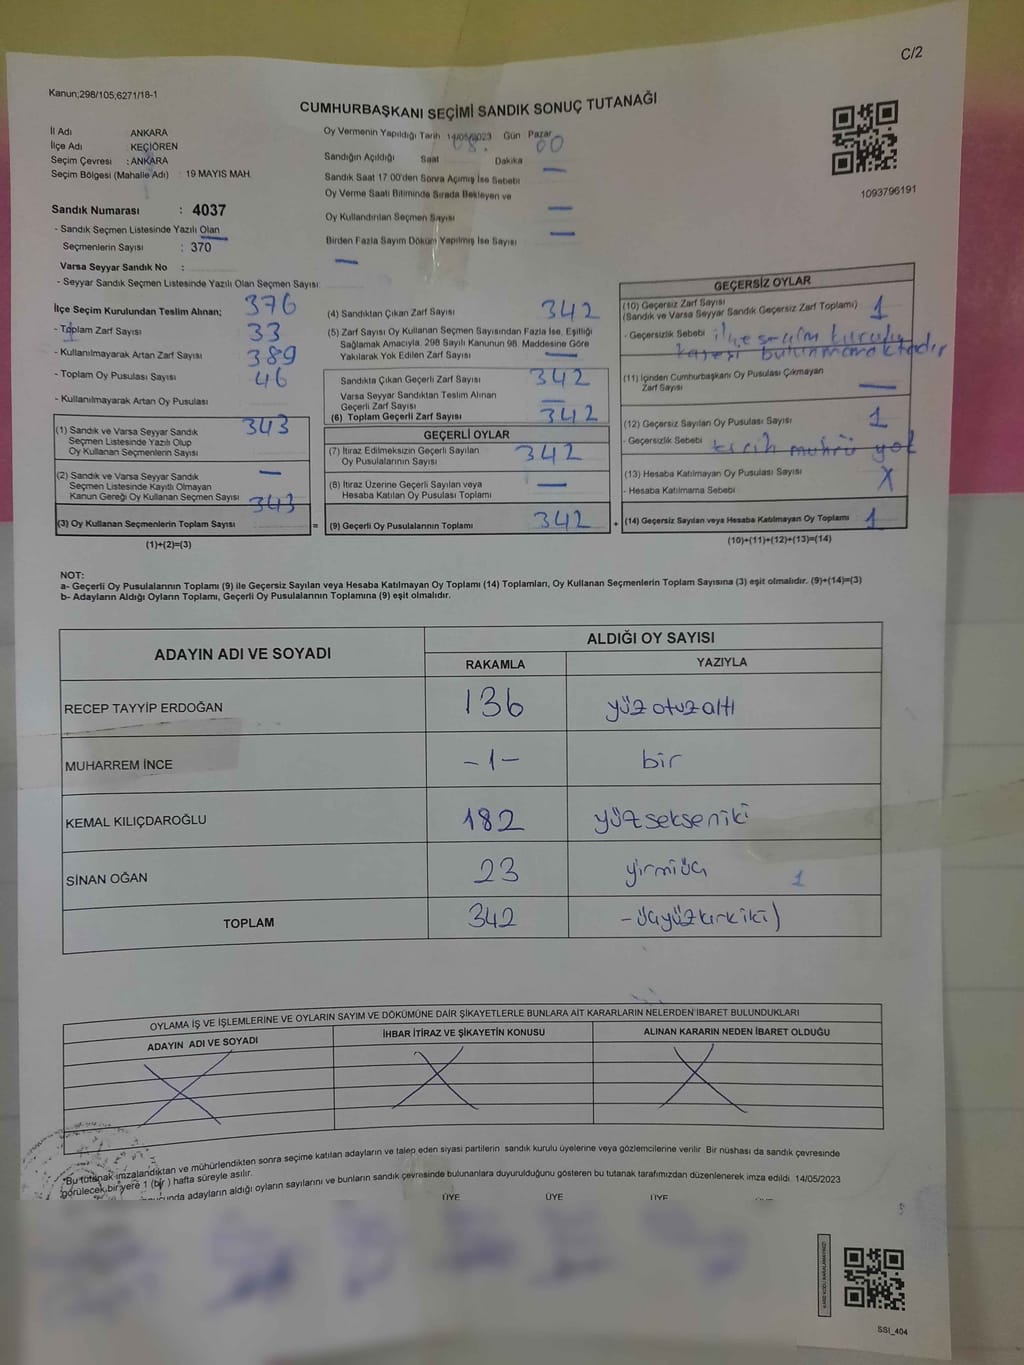 C/2
Kanun;298/105;6271/18-1
CUMHURBAŞKANI SEÇİMİ SANDIK SONUÇ TUTANAĞI
1093796191
İl Adı ANKARA
İlçe Adı KEÇİÖREN
Seçim Çevresi : ANKARA
Seçim Bölgesi (Mahalle Adı) : 19 MAYIS MAH.
Sandık Numarası : 4037
- Sandık Seçmen Listesinde Yazılı Olan
Seçmenlerin Sayısı : 370
Varsa Seyyar Sandık No :
- Seyyar Sandık Seçmen Listesinde Yazılı Olan Seçmen Sayısı:
Oy Vermenin Yapıldığı Tarih 14/05/2023 Gün Pazar
Sandığın Açıldığı Saat 08. Dakika 00
Sandık Saat 17.00'den Sonra Açımış İse Sebebi —
Oy Verme Saati Bitiminde Sırada Bekleyen ve
Oy Kullandırılan Seçmen Sayısı —
Birden Fazla Sayım Döküm Yapılmış İse Sayısı —
İlçe Seçim Kurulundan Teslim Alınan; 376
- Toplam Zarf Sayısı 33
- Kullanılmayarak Artan Zarf Sayısı 389
- Toplam Oy Pusulası Sayısı 46
- Kullanılmayarak Artan Oy Pusulası
(1) Sandık ve Varsa Seyyar Sandık 343
Seçmen Listesinde Yazılı Olup
Oy Kullanan Seçmenlerin Sayısı
(2) Sandık ve Varsa Seyyar Sandık —
Seçmen Listesinde Kayıtlı Olmayan
Kanun Gereği Oy Kullanan Seçmen Sayısı 343
(3) Oy Kullanan Seçmenlerin Toplam Sayısı =
(1)+(2)=(3)
(4) Sandıktan Çıkan Zarf Sayısı 342
(5) Zarf Sayısı Oy Kullanan Seçmen Sayısından Fazla İse, Eşitliği
Sağlamak Amacıyla, 298 Sayılı Kanunun 98. Maddesine Göre
Yakılarak Yok Edilen Zarf Sayısı —
Sandıkta Çıkan Geçerli Zarf Sayısı 342
Varsa Seyyar Sandıktan Teslim Alınan
Geçerli Zarf Sayısı —
(6) Toplam Geçerli Zarf Sayısı 342
GEÇERLİ OYLAR
(7) İtiraz Edilmeksizin Geçerli Sayılan 342
Oy Pusulalarının Sayısı
(8) İtiraz Üzerine Geçerli Sayılan veya —
Hesaba Katılan Oy Pusulası Toplamı
(9) Geçerli Oy Pusulalarının Toplamı 342 +
GEÇERSİZ OYLAR
(10) Geçersiz Zarf Sayısı
(Sandık ve Varsa Seyyar Sandık Geçersiz Zarf Toplamı) 1
- Geçersizlik Sebebi ilçe seçim kurulu
kaşesi bulunmamaktadır
(11) İçinden Cumhurbaşkanı Oy Pusulası Çıkmayan
Zarf Sayısı —
(12) Geçersiz Sayılan Oy Pusulası Sayısı 1
- Geçersizlik Sebebi tercih mührü yok
(13) Hesaba Katılmayan Oy Pusulası Sayısı X
- Hesaba Katılmama Sebebi
(14) Geçersiz Sayılan veya Hesaba Katılmayan Oy Toplamı 1
(10)+(11)+(12)+(13)=(14)
NOT:
a- Geçerli Oy Pusulalarının Toplamı (9) ile Geçersiz Sayılan veya Hesaba Katılmayan Oy Toplamı (14) Toplamları, Oy Kullanan Seçmenlerin Toplam Sayısına (3) eşit olmalıdır. (9)+(14)=(3)
b- Adayların Aldığı Oyların Toplamı, Geçerli Oy Pusulalarının Toplamına (9) eşit olmalıdır.
ADAYIN ADI VE SOYADI ALDIĞI OY SAYISI
RAKAMLA YAZIYLA
RECEP TAYYİP ERDOĞAN 136 yüz otuz altı
MUHARREM İNCE -1- bir
KEMAL KILIÇDAROĞLU 182 yüzsekseniki
SİNAN OĞAN 23 yirmiüç 1
TOPLAM 342 -üçyüzkırkiki)
OYLAMA İŞ VE İŞLEMLERİNE VE OYLARIN SAYIM VE DÖKÜMÜNE DAİR ŞİKAYETLERLE BUNLARA AİT KARARLARIN NELERDEN İBARET BULUNDUKLARI
ADAYIN ADI VE SOYADI İHBAR İTİRAZ VE ŞİKAYETİN KONUSU ALINAN KARARIN NEDEN İBARET OLDUĞU
*Bu tutanak imzalandıktan ve mühürlendikten sonra seçime katılan adayların ve talep eden siyasi partilerin sandık kurulu üyelerine veya gözlemcilerine verilir. Bir nüshası da sandık çevresinde
görülecek bir yere 1 (bir) hafta süreyle asılır.
adayların aldığı oyların sayılarını ve bunların sandık çevresinde bulunanlara duyurulduğunu gösteren bu tutanak tarafımızdan düzenlenerek imza edildi. 14/05/2023
ÜYE ÜYE ÜYE
SSI_404